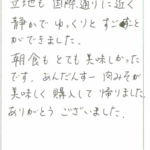 立地も国際通りに近く
静かでゆっくりとすごすこと
ができました。
朝食もとても美味しかった
です。あんだんすー肉みそが
美味しく購入して帰りました。
ありがとうございました。